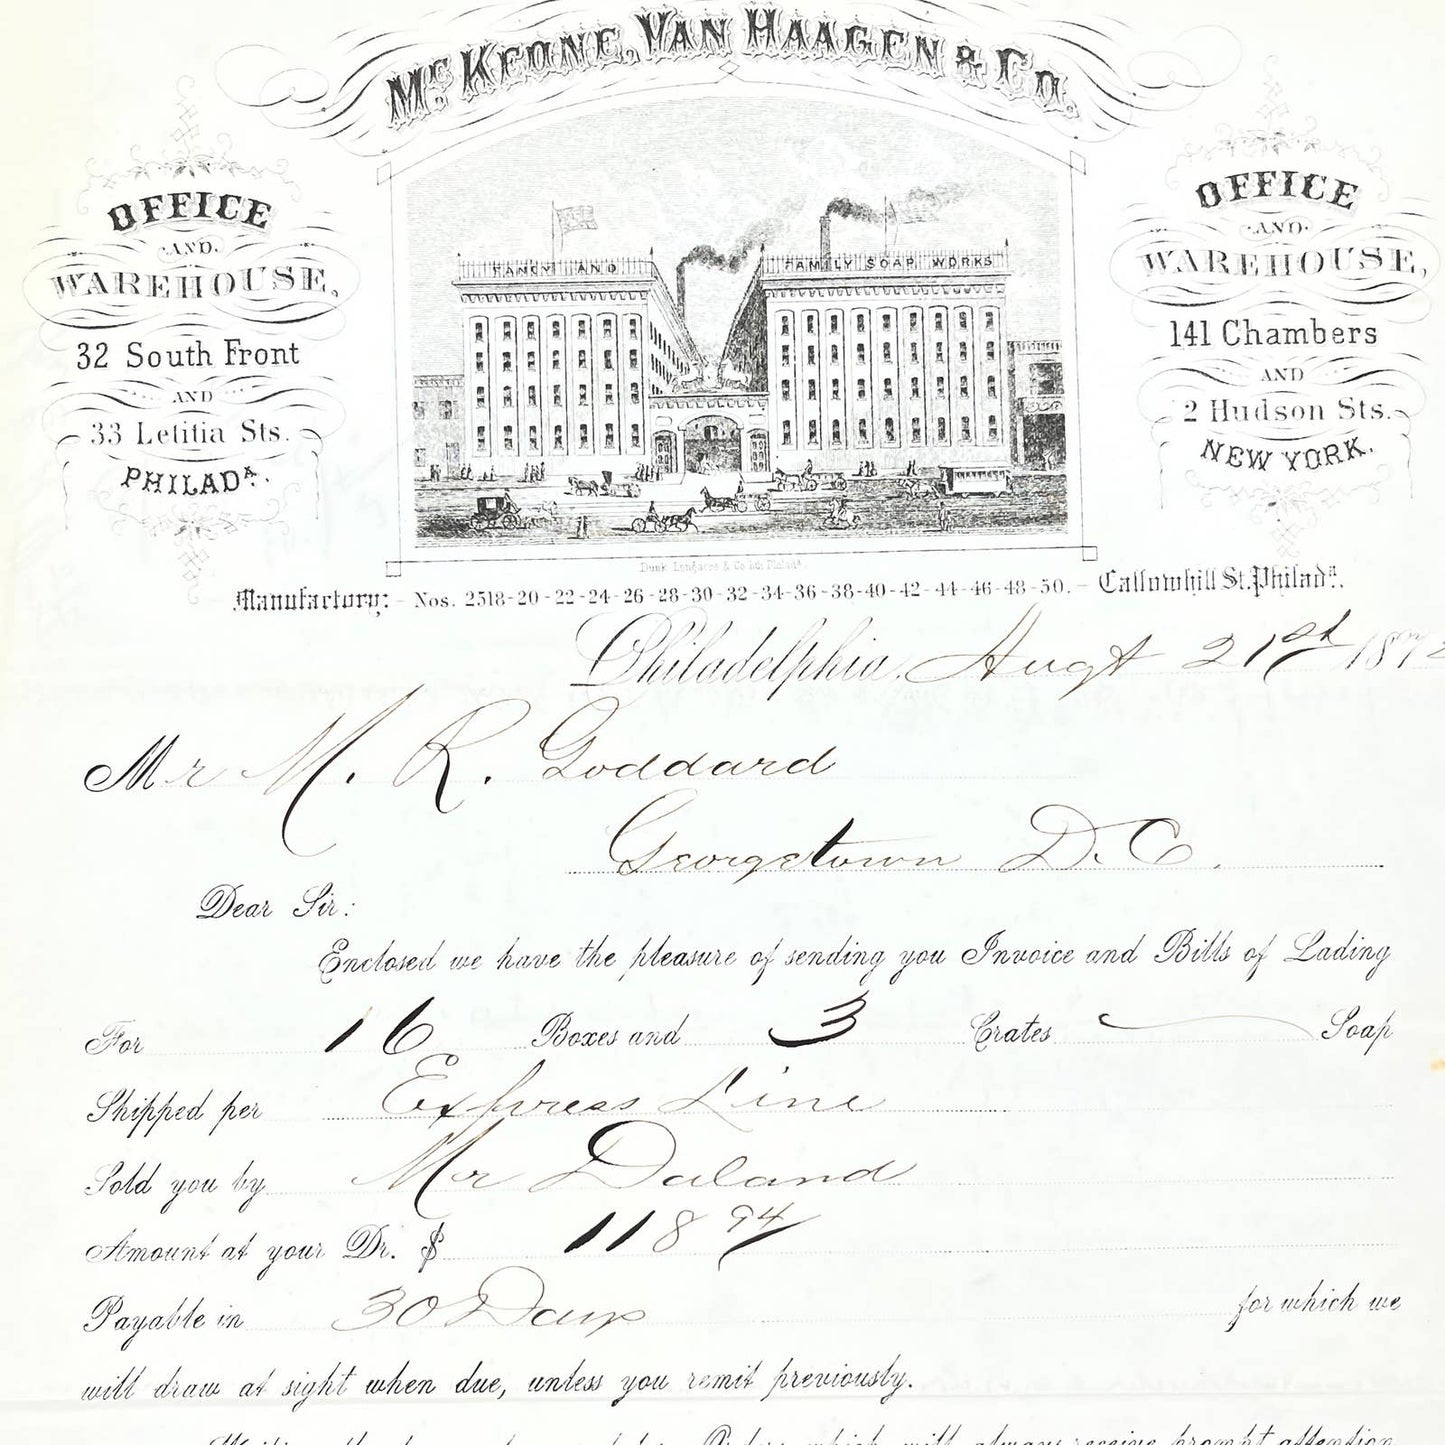 McKeone, Van Haagen & Co.
OFFICE
AND
WAREHOUSE,
32 South Front
AND
33 Letitia Sts.
PHILADA.
FANCY AND
FAMILY SOAP WORKS
OFFICE
AND
WAREHOUSE,
141 Chambers
AND
2 Hudson Sts.
NEW YORK.
Manufactory: - Nos. 2518-20-22-24-26-28-30-32-34-36-38-40-42-44-46-48-50. - Callowhill St. Philada.
Philadelphia, Augt 21st 187
Mr M. R. Goddard
Georgetown D.C.
Dear Sir:
Enclosed we have the pleasure of sending you Invoice and Bills of Lading
For 16 Boxes and 3 Crates Soap
Shipped per Express Line
Sold you by Mr Daland
Amount at your Dr. $ 118 94
Payable in 30 Days for which we
will draw at sight when due, unless you remit previously.
Orders which will always receive prompt attention